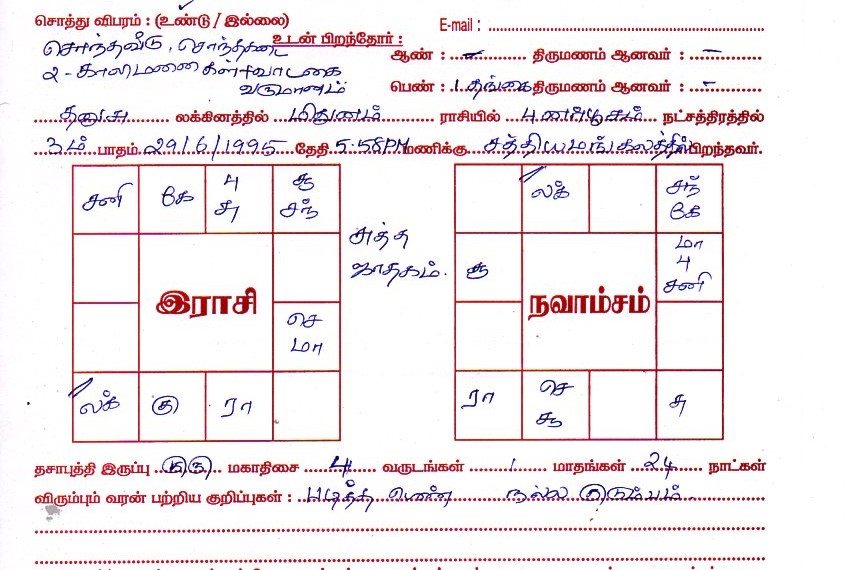 சொத்து விபரம் : (உண்டு / இல்லை)
E-mail :
சொந்தவீடு, சொந்தகடை
உடன் பிறந்தோர் :
ஆண் : – திருமணம் ஆனவர் : –
2 - காலிமனைகள் + வாடகை
வருமானம்
பெண் : 1 தங்கை திருமணம் ஆனவர் : –
தனுசு லக்கினத்தில் மிதுனம் ராசியில் புனர்பூசம் நட்சத்திரத்தில்
3ம் பாதம் 29/6/1995 தேதி 5.58PM மணிக்கு சத்தியமங்கலத்தில் பிறந்தவர்.
சனி கே பு சு சூ சந்
இராசி
செ மா
லக் குரு ரா
சுத்த
ஜாதகம்.
லக் சந் கே
மா பு சனி
நவாம்சம்
ரா செ சு
தசாபுத்தி இருப்பு குரு மகாதிசை 4 வருடங்கள் 1 மாதங்கள் 24 நாட்கள்
விரும்பும் வரன் பற்றிய குறிப்புகள் : படித்த பெண் நல்ல குடும்பம்.